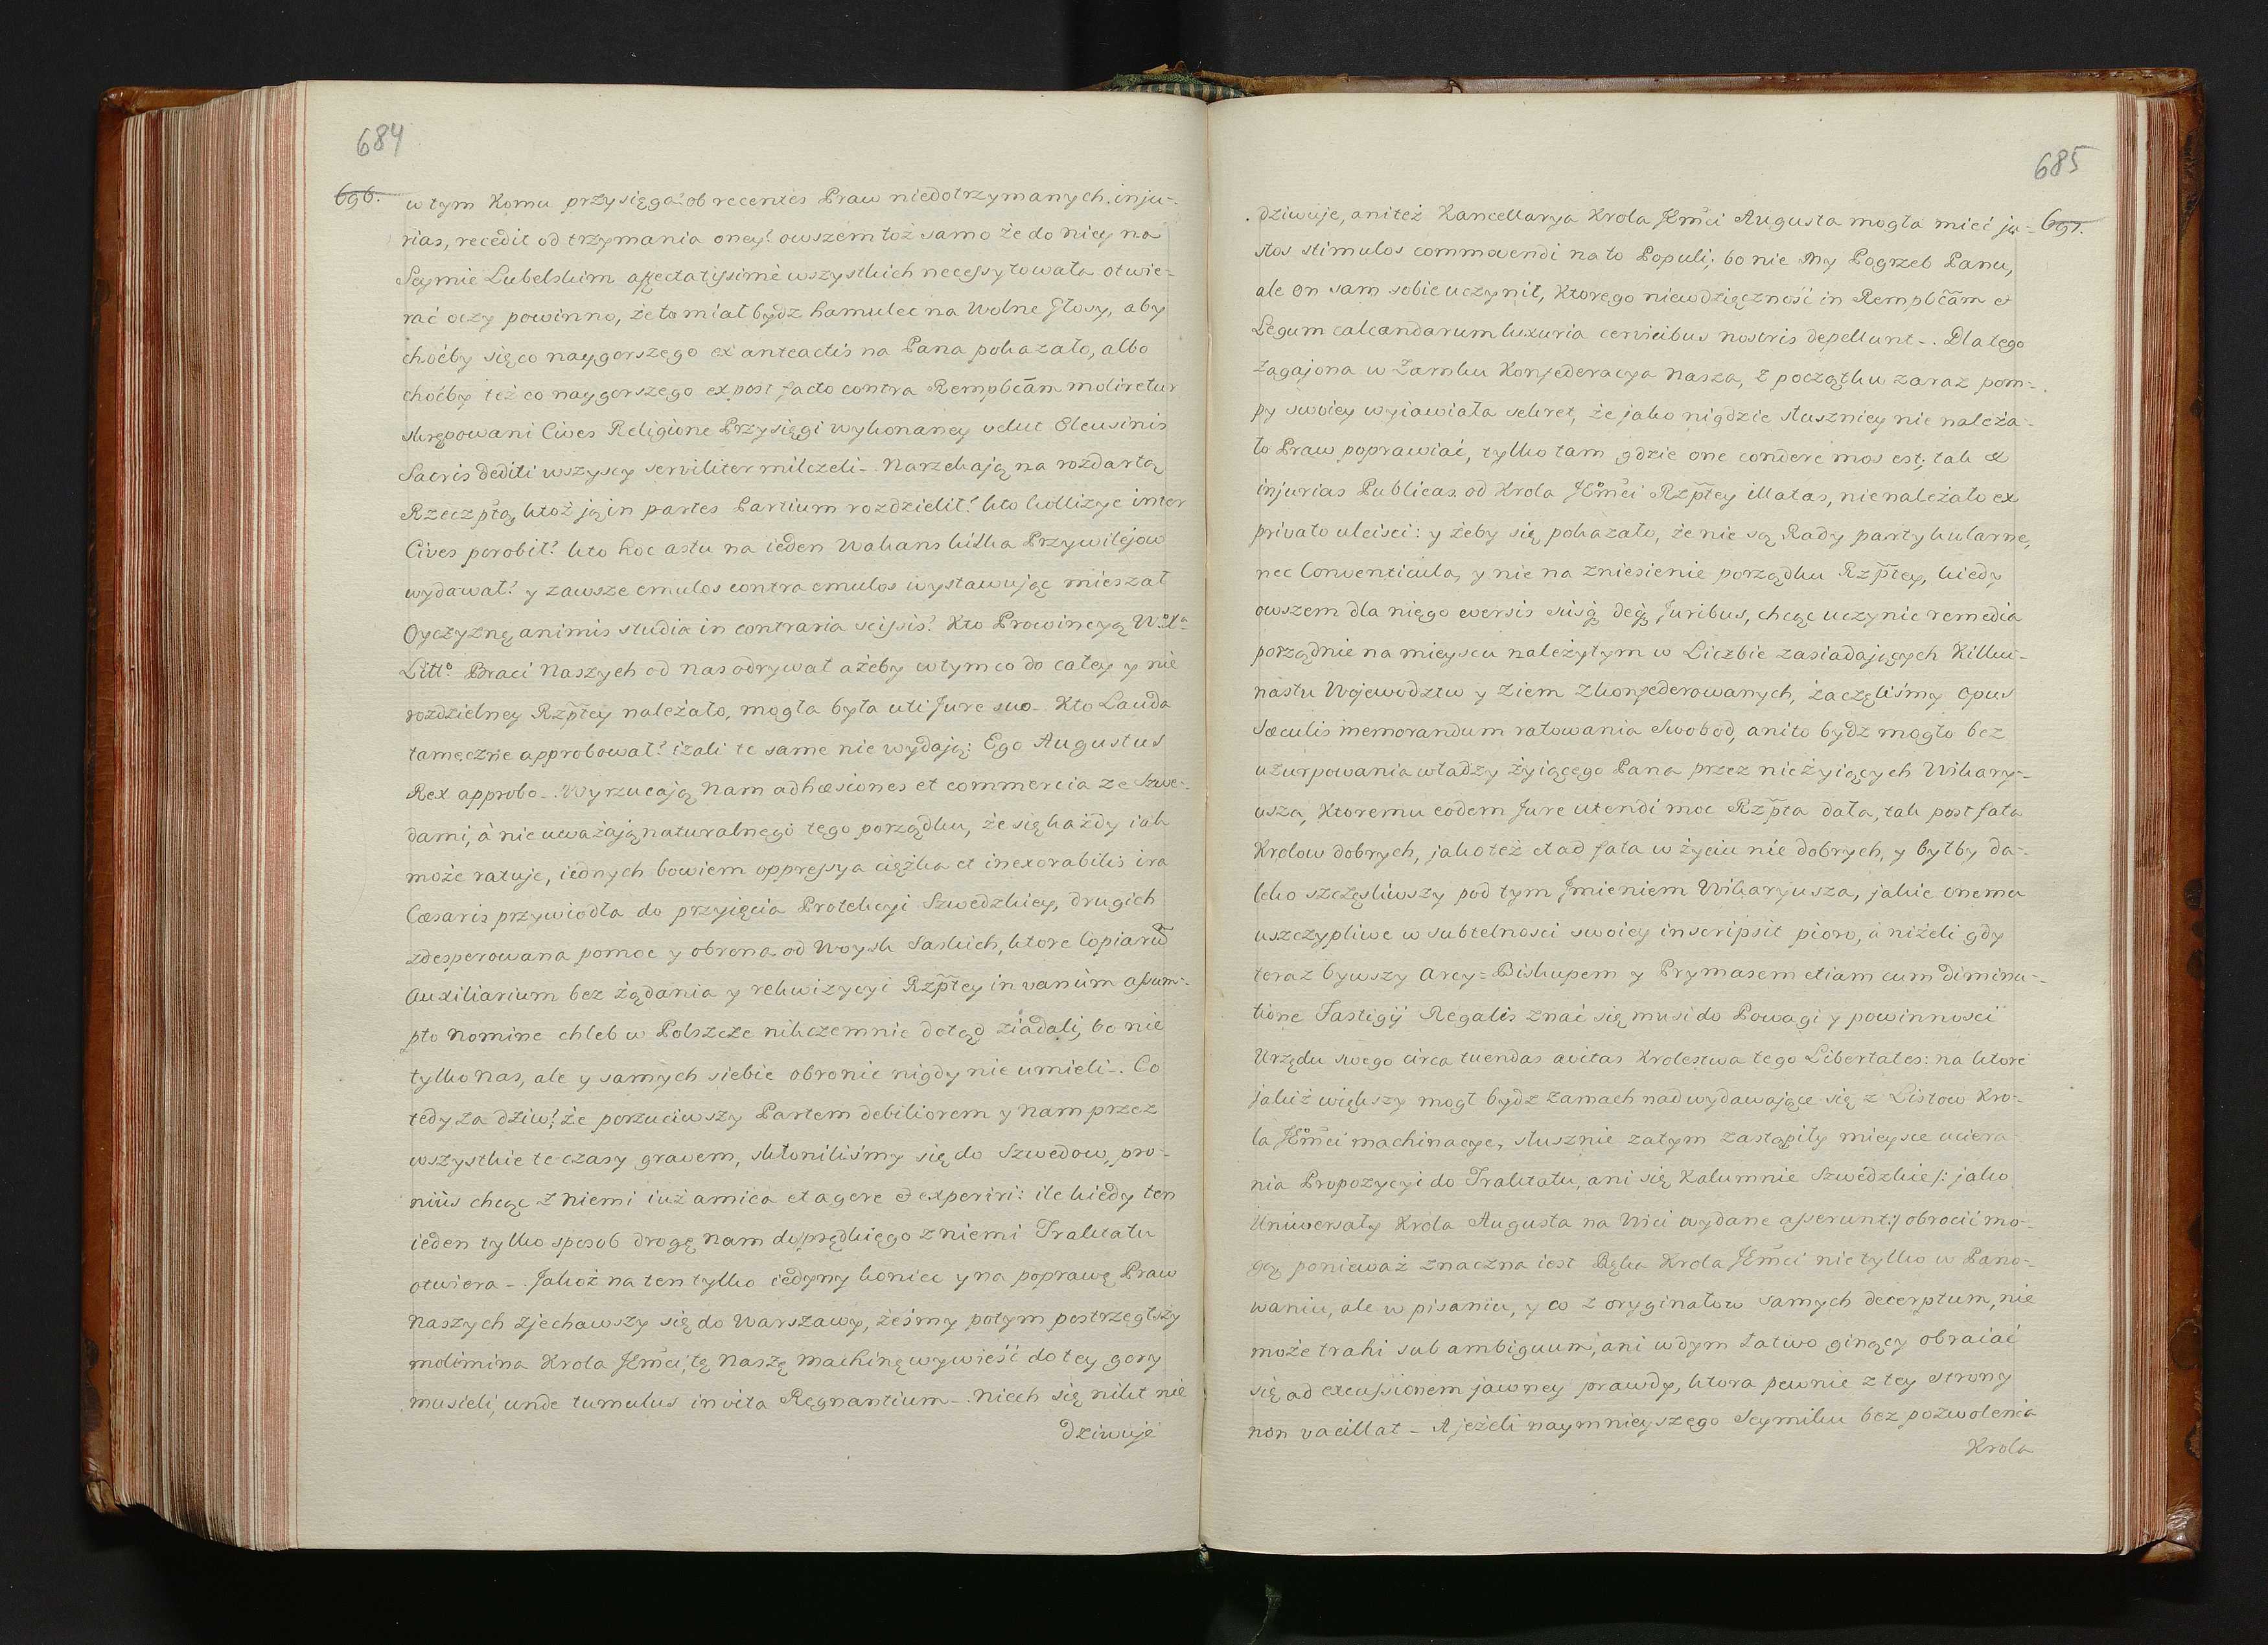 684
696.
w tym Komu przysięga? ob recentes Praw niedotrzymanych inju-
rias, recedit od trzymania oney? owszem toż samo że do niey na
Seymie Lubelskim affectatissimè wszystkich necessytowała otwie-
rać oczy powinno, że to miał bydz hamulec na Wolne Głosy, aby
choćby się co naygorszego ex anteactis na Pana pokazało, albo
choćby też co naygorszego ex post facto contra Rempbcam moliretur
skrępowani Cives Religione Przysięgi wykonaney velut Eleusinis
Sacris dediti wszyscy serviliter milczeli_. Narzekają na rozdartą
Rzeczptą, ktoż ją in partes Partium rozdzielił? kto kollizye inter
Cives porobił? kto hoc astu na ieden Wakans kilka Przywilejow
wydawał? y zawsze emulos contra emulos wystawując mieszał
Oyczyznę animis studia in contraria scissis? Kto Prowincyą W.o X.a
Litt.o Braci Naszych od nas odrywał ażeby w tym co do całey y nie
rozdzielney Rzptey należało, mogła była uti Jure suo_. Kto Lauda
tameczne approbował? izali te same nie wydają: Ego Augustus
Rex approbo_. Wyrzucają Nam adhæsiones et commercia ze Szwe-
dami, à nie uważają naturalnego tego porządku, że się każdy iak
może ratuje, iednych bowiem oppressya ciężka et inexorabilis ira
Cæsaris przywiodła do przyięcia Protekcyi Szwedzkiey, drugich
zdesperowana pomoc y obrona od Woysk Saskich, ktore Copiarum
Auxiliarium bez żądania y rekwizycyi Rzptey in vanum assum-
pto Nomine chleb w Polszcze nikczemnie dotąd ziadali, bo nie
tylko nas, ale y samych siebie obronic nigdy nie umieli_. Co
tedy za dziw? że porzuciwszy Partem debiliorem y nam przez
wszystkie te czasy gravem, skłoniliśmy się do Szwedow, pro-
niùs chcąc z niemi iuż amica et agere & experiri: ile kiedy ten
ieden tylko sposob drogę nam do prędkiego z niemi Traktatu
otwiera_. Jakoż na ten tylko iedyny koniec y na poprawę Praw
Naszych zjechawszy się do Warszawy, żeśmy potym postrzegłszy
molimina Krola JEmci, tę naszę machinę wywieść do tey gory
musieli, unde tumulus in vita Regnantium_. Niech się nikt nie
dziwuje
685
697.
dziwuje, ani też Kancellarya Krola JEmci Augusta mogła mieć ju-
stos stimulos commovendi na to Populi; bo nie My Pogrzeb Panu,
ale On sam sobie uczynił, ktorego niewdzięczność in Rempbcam et
Legum calcandarum luxuria cervicibus nostris depellunt_. Dla tego
zagajona w Zamku Konfederacya Nasza, z początku zaraz pom-
py swoiey wyiawiała sekret, że jako nigdzie słuszniey nie należa-
ło Praw poprawiać, tylko tam gdzie one condere mos est; tak &
injurias Publicas od Krola JEmci Rzptey illatas, nie należało ex
privato ulcisci: y żeby się pokazało, że nie są Rady partykularne,
nec Conventicula, y nie na zniesienie porządku Rzptey, kiedy
owszem dla niego eversis susq deq Juribus, chcąc uczynic remedia
porządnie na mieyscu należytym w Liczbie zasiadających Kilku-
nastu Wojewodztw y Ziem zkonfederowanych, zaczęliśmy opus
Sæculis memorandum ratowania Swobod, ani to bydz mogło bez
uzurpowania władzy żyiącego Pana przez nieżyiących Wikary-
usza, Ktoremu eodem Jure utendi moc Rzpta dała, tak post fata
Krolow dobrych, jako też et ad fata w życiu nie dobrych, y byłby da-
leko szczęśliwszy pod tym Jmieniem Wikaryusza, jakie onemu
uszczypliwe w subtelnosci swoiey inscripsit pioro, à niżeli gdy
teraz bywszy Arcy=Biskupem y Prymasem etiam cum diminu-
tione Fastigij Regalis znać się musi do Powagi y powinności
Urzędu swego circa tuendas avitas Krolestwa tego Libertates: na ktore
jakiż większy mogł bydz zamach nad wydawające się z Listow Kro-
la JEmci machinacye, słusznie zatym zastąpiły mieysce uciera-
nia Propozycyi do Traktatu, ani się Kalumnie Szwedzkie /: jako
Uniwersały Krola Augusta na Wici wydane asserunt:/ obrocić mo-
gą, ponieważ znaczna iest Ręka Krola JEmci nie tylko w Pano-
waniu, ale w pisaniu, y co z oryginałow samych decerptum, nie
może trahi sub ambiguum, ani w dym łatwo ginący obraiać
się ad excussionem jawney prawdy, ktora pewnie z tey strony
non vacillat_. A jeżeli naymnieyszego Seymiku bez pozwolenia
Krola